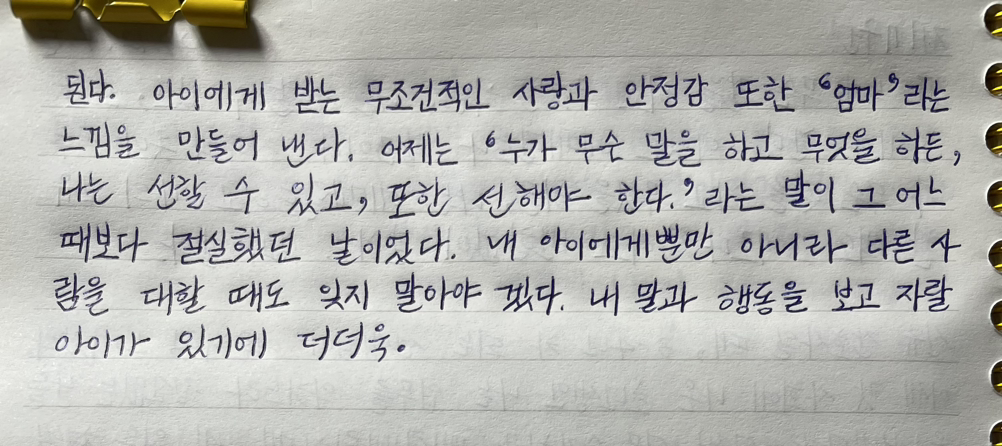 된다. 아이에게 받는 무조건적인 사랑과 안정감 또한 '엄마'라는
느낌을 만들어 낸다. 어제는 '누가 무슨 말을 하고 무엇을 하든,
나는 선할 수 있고, 또한 선해야 한다.'라는 말이 그 어느
때보다 절실했던 날이었다. 내 아이에게뿐만 아니라 다른 사
람을 대할 때도 잊지 말아야 겠다. 내 말과 행동을 보고 자랄
아이가 있기에 더더욱.